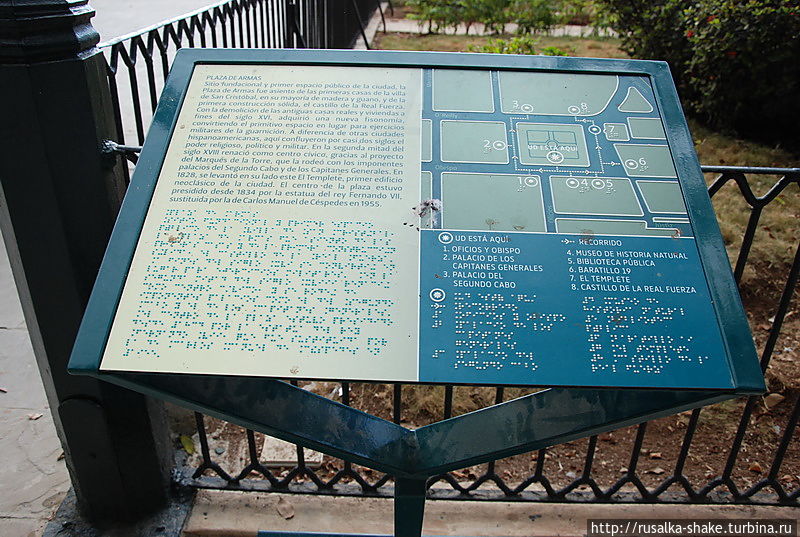 PLAZA DE ARMAS
Sitio fundacional y primer espacio público de la ciudad, la
Plaza de Armas fue asiento de las primeras casas de la villa
de San Cristóbal, en su mayoría de madera y guano, y de la
primera construcción sólida, el castillo de la Real Fuerza.
Con la demolición de las antiguas casas reales y viviendas a
fines del siglo XVI, adquirió una nueva fisonomía,
convirtiendo el primitivo espacio en lugar para ejercicios
militares de la guarnición. A diferencia de otras ciudades
hispanoamericanas, aquí confluyeron por casi dos siglos el
poder religioso, político y militar. En la segunda mitad del
siglo XVIII renació como centro cívico, gracias al proyecto
del Marqués de la Torre, que la rodeó con los imponentes
palacios del Segundo Cabo y de los Capitanes Generales. En
1828, se levantó en su lado este El Templete, primer edificio
neoclásico de la ciudad. El centro de la plaza estuvo
presidido desde 1834 por la estatua del rey Fernando VII,
sustituida por la de Carlos Manuel de Céspedes en 1955.
O'Reilly
Obispo
3
8
7
2
UD ESTÁ AQUÍ
6
1
4
5
UD ESTÁ AQUÍ
1. OFICIOS Y OBISPO
2. PALACIO DE LOS
CAPITANES GENERALES
3. PALACIO DEL
SEGUNDO CABO
RECORRIDO
4. MUSEO DE HISTORIA NATURAL
5. BIBLIOTECA PÚBLICA
6. BARATILLO 19
7. EL TEMPLETE
8. CASTILLO DE LA REAL FUERZA
http://rusalka-shake.turbina.ru